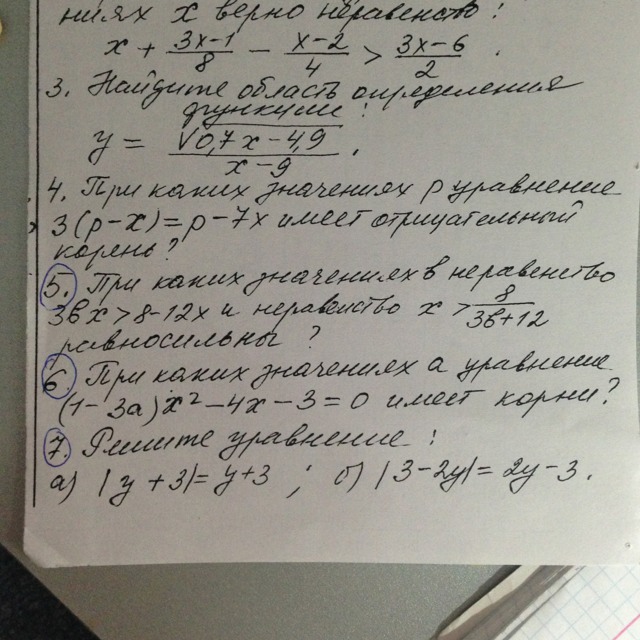 ниях x верно неравенство:
x + \frac{3x-1}{8} - \frac{x-2}{4} > \frac{3x-6}{2}.
3. Найдите область определения
функции:
y = \frac{\sqrt{0,7x-4,9}}{x-9}.
4. При каких значениях p уравнение
3(p-x)=p-7x имеет отрицательный
корень?
5. При каких значениях в неравенство
3вx>8-12x и неравенство x > \frac{8}{3в+12}
равносильны?
6. При каких значениях a уравнение
(1-3a)x²-4x-3=0 имеет корни?
7. Решите уравнение:
а) |y+3|=y+3; б) |3-2y|=2y-3.